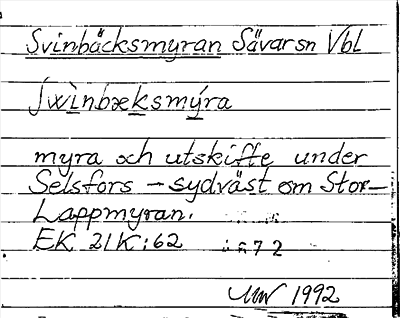 Svinbäcksmyran Sävarsn Vbl
ʃwìnbæksmýra
myra och utskifte under
Selsfors – sydväst om Stor-
Lappmyran.
EK 21K:62
1992